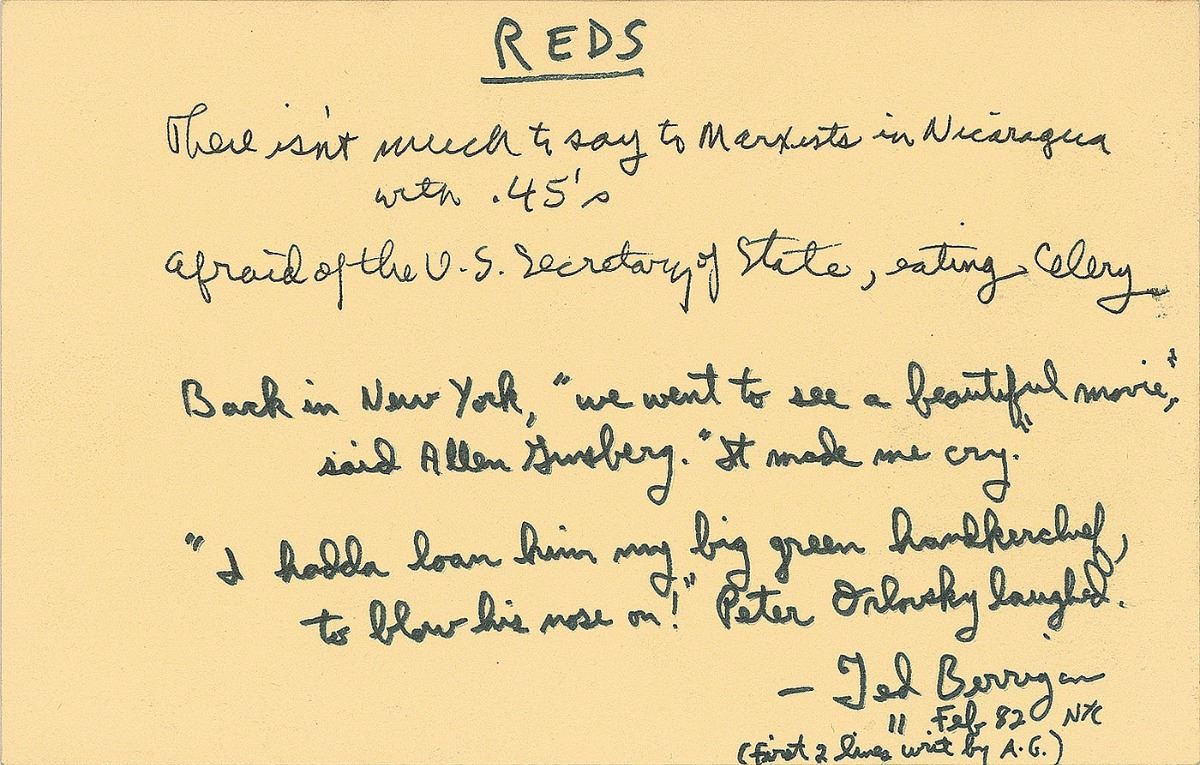 REDS
There isn't much to say to Marxists in Nicaragua
with .45's
afraid of the U.S. Secretary of State, eating Celery
Back in New York, "we went to see a beautiful movie,"
said Allen Ginsberg. "It made me cry."
"I hadda loan him my big green handkerchief,
to blow his nose on!" Peter Orlovsky laughed.
— Ted Berrigan
11 Feb 82 NYC
(first 2 lines writ by A.G.)